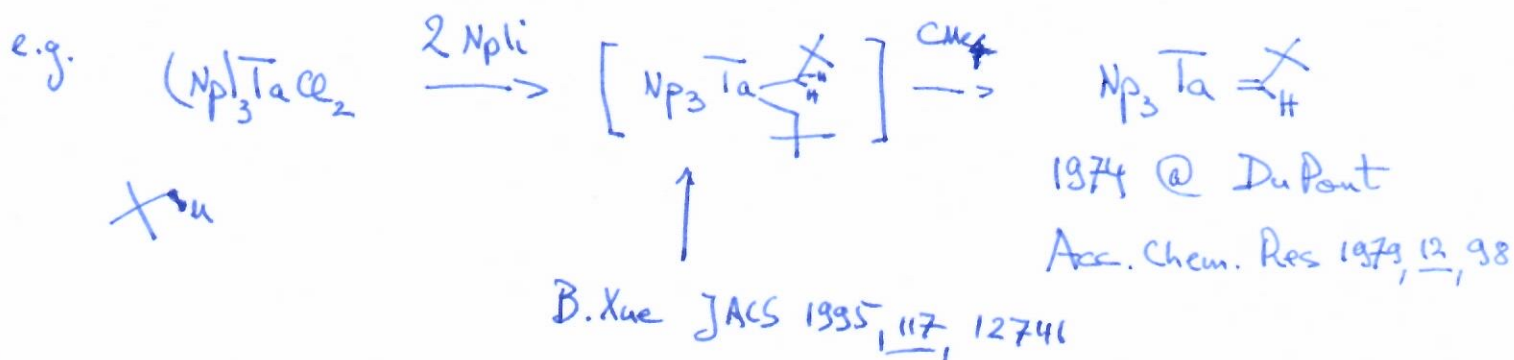 e.g. (Np)3TaCl2 2 NpLi [ Np3 Ta H H ] CMe4 Np3 Ta = H
1974 @ DuPont
Acc. Chem. Res 1979, 12, 98
B. Xue JACS 1995, 117, 12746